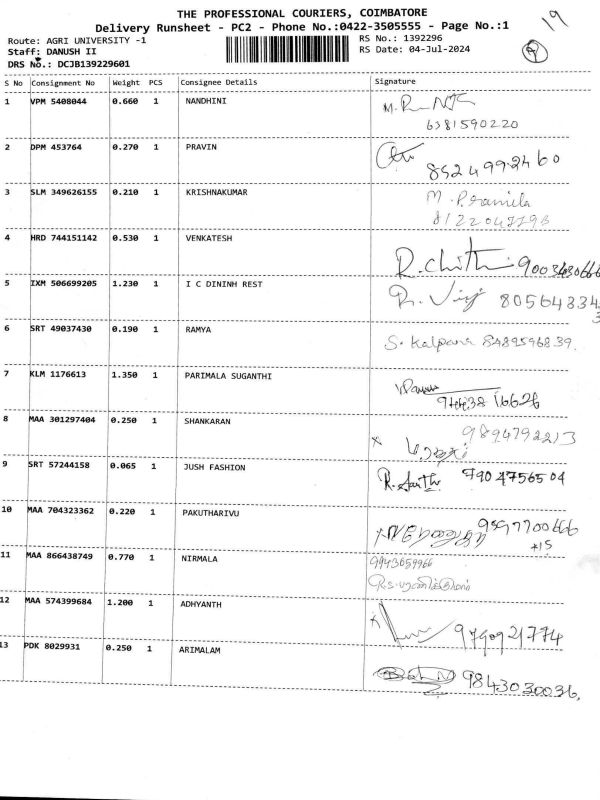 THE PROFESSIONAL COURIERS, COIMBATORE
Delivery Runsheet - PC2 - Phone No.:0422-3505555 - Page No.:1
19
Route: AGRI UNIVERSITY -1 RS No.: 1392296
Staff: DANUSH II RS Date: 04-Jul-2024
DRS No.: DCJB139229601
S No Consignment No Weight PCS Consignee Details Signature
1 VPM 5408044 0.660 1 NANDHINI
6381590220
2 DPM 453764 0.270 1 PRAVIN
8524992460
3 SLM 349626155 0.210 1 KRISHNAKUMAR M. Pramila
4 HRD 744151142 0.530 1 VENKATESH
R. Chithi
5 IXM 506699205 1.230 1 I C DININH REST
6 SRT 49037430 0.190 1 RAMYA S. Kalpana 8489596839
7 KLM 1176613 1.350 1 PARIMALA SUGANTHI
8 MAA 301297404 0.250 1 SHANKARAN 9894792213
9 SRT 57244158 0.065 1 JUSH FASHION 7904756504
10 MAA 704323362 0.220 1 PAKUTHARIVU 9597700666
*15
11 MAA 866438749 0.770 1 NIRMALA 9943059966
12 MAA 574399684 1.200 1 ADHYANTH
9790921774
13 PDK 8029931 0.250 1 ARIMALAM 9843030036